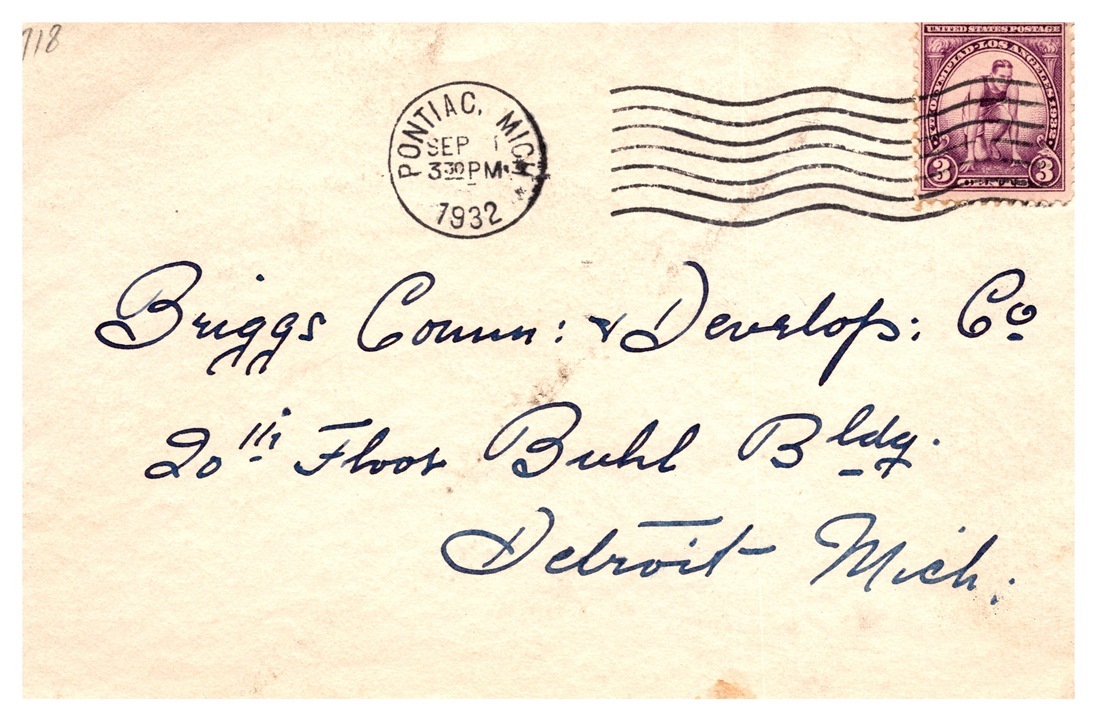 718
PONTIAC, MICH
SEP 1
3 30 PM
1932
UNITED STATES POSTAGE
XTH OLYMPIAD-LOS ANGELES 1932
3 CENTS 3
Briggs Comm: & Develop: Co
20th Floor Buhl Bldg.
Detroit Mich.